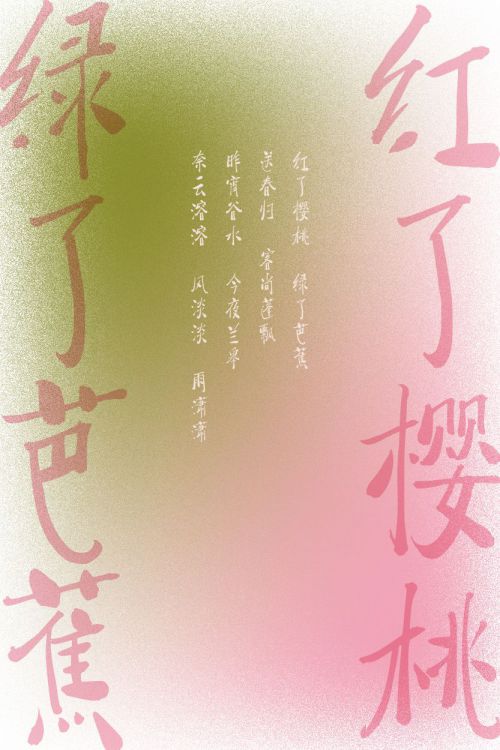 红了樱桃
绿了芭蕉
红了樱桃 绿了芭蕉
送春归 客尚蓬飘
昨宵谷水 今夜兰皋
奈云溶溶 风淡淡 雨潇潇